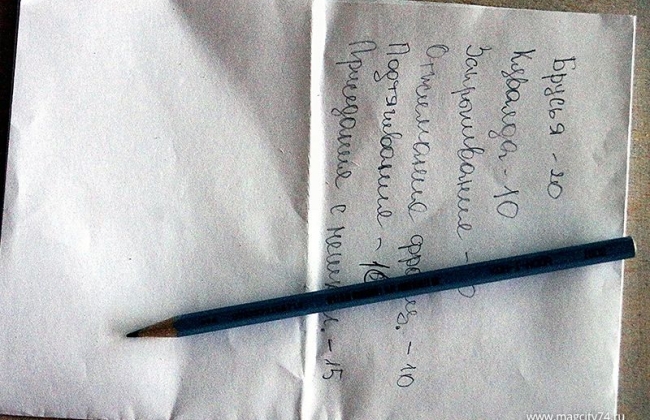 Брусья - 20
Кувалда - 10
Запрыгивание -
Отжимания - 10
Подтягивание -
Приседания с - 15
www.magcity74.ru